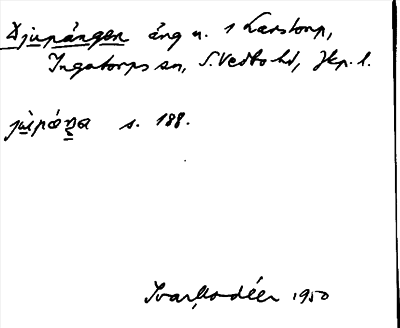 Djupängen äng u. 1 Karstorp,
Ingatorps sn, S. Vedbo hd, Jkp. l.
s. 188.
Ivar Modéer 1950